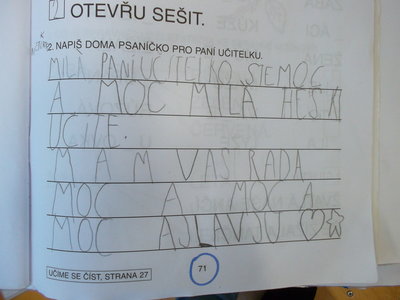 OTEVŘU SEŠIT.
2. NAPIŠ DOMA PSANÍČKO PRO PANÍ UČITELKU.
MILÁ PANÍ UČITELKO STE MOC
A MOC MILÁ HESKI
UČITE.
MÁM VÁS RÁDA
MOC A MOC A
MOC AJLAVJŮ
UČÍME SE ČÍST, STRANA 27
71